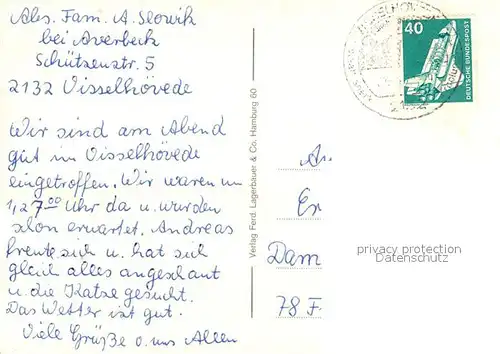 Abs. Fam. A. Slowik
bei Averbeck
Schützenstr. 5
2132 Visselhövede
Wir sind am Abend
gut in Visselhövede
eingetroffen. Wir waren um
Uhr da u. wurden
schon erwartet. Andreas
freute sich u. hat sich
gleich alles angeschaut
u. die Katze gesucht.
Das Wetter ist gut.
Viele Grüße v. uns Allen
Verlag Ferd. Lagerbauer & Co. Hamburg 60
40
DEUTSCHE BUNDESPOST
An
Er
Dam
78 F
privacy protection
Datenschutz